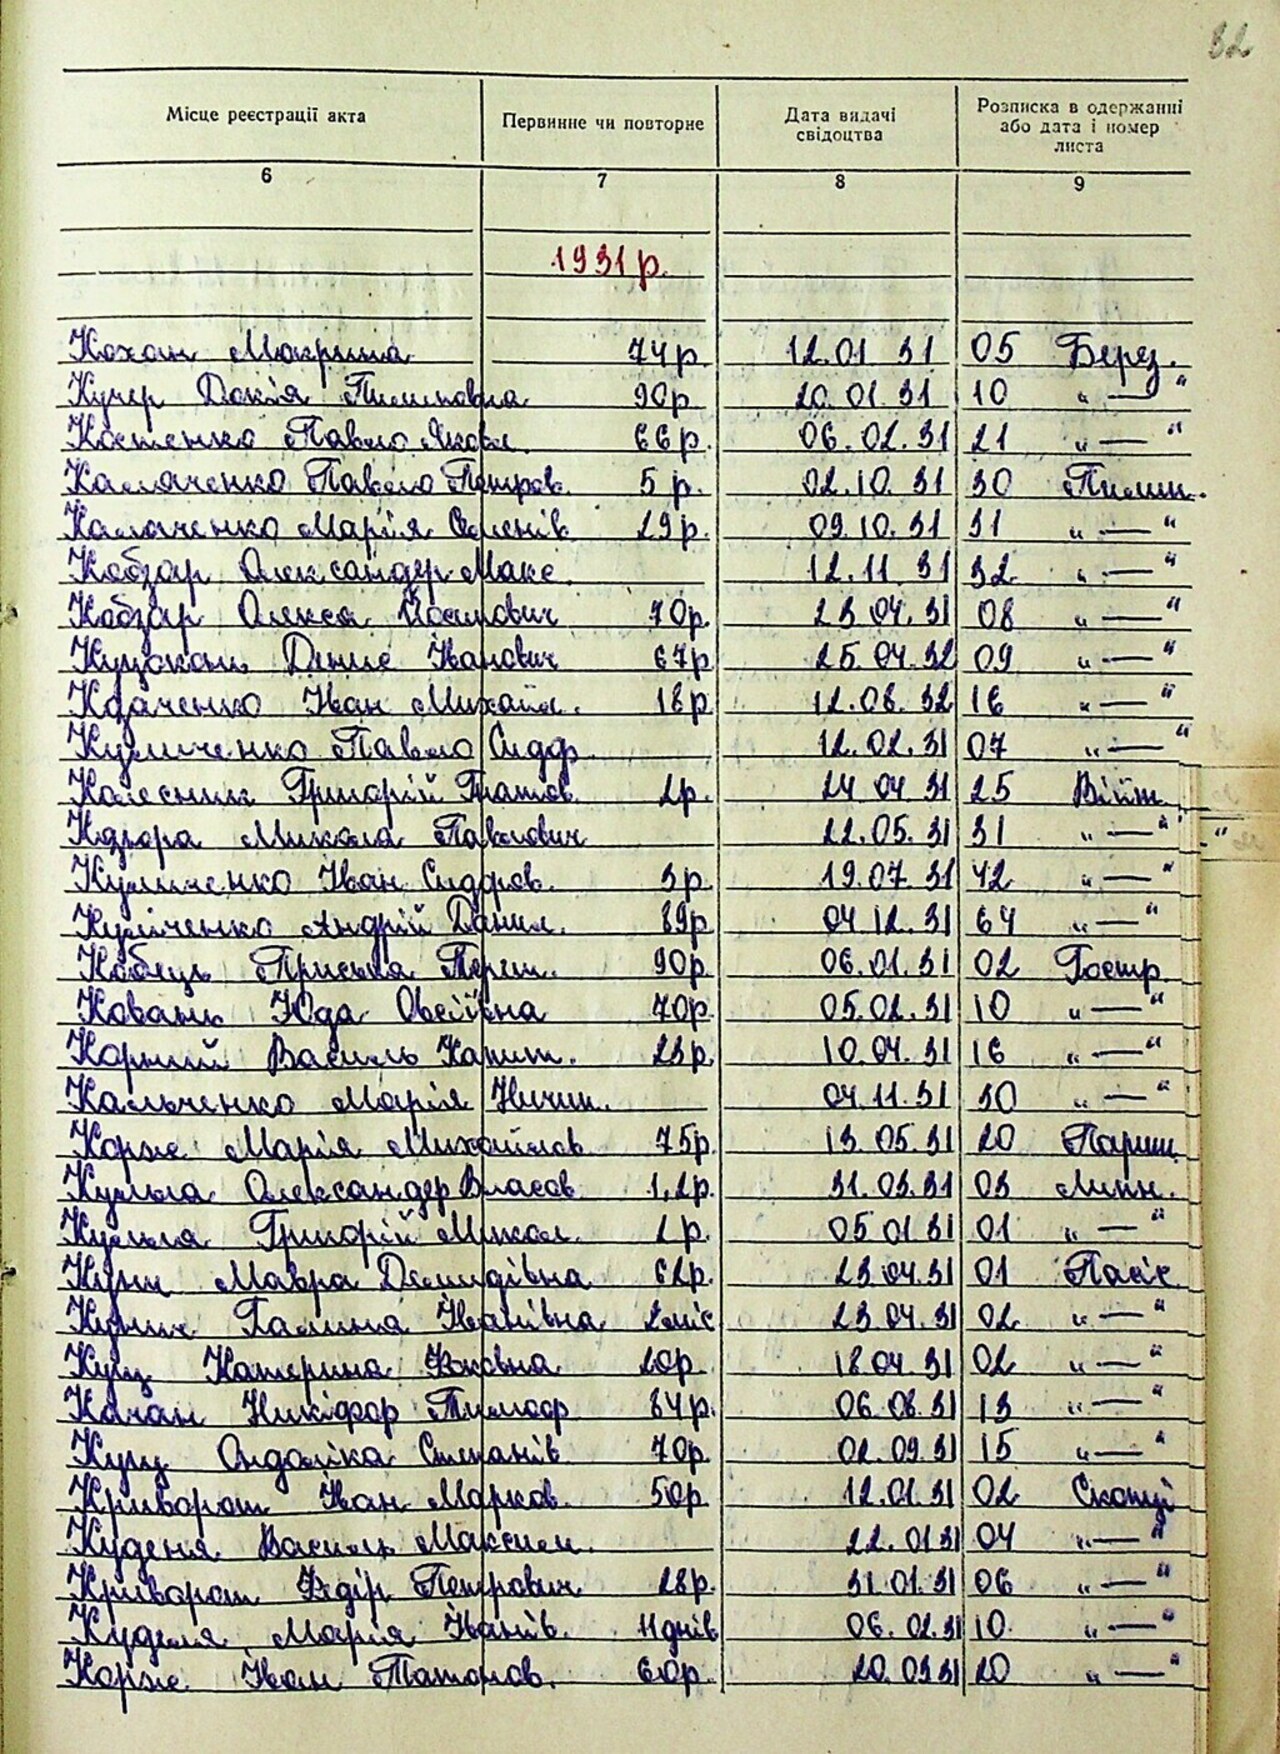 32
Місце реєстрації акта Первинне чи повторне Дата видачі свідоцтва Розписка в одержанні або дата і номер листа
6 7 8 9
1931 р.
Кохан Макрина 74 р. 12.01 31 05 Берез.
Кучер Докія Пилиповна 90 р. 20.01.31 10 " — "
Костенко Павло Яковл. 66 р. 06.02.31 21 " — "
Калаченко Павло Петров. 5 р. 02.10.31 30 Пилип.
Калаченко Марія Семенів. 29 р. 09.10.31 31 " — "
Кобзар Олександер Макс. 12.11.31 32 " — "
Кобзар Олекса Йосипович 70 р. 23.04.31 08 " — "
Денис Іванович 67 р 25.04.32 09 " — "
Казаченко Іван Михайл. 18 р 12.08.32 16 " — "
Куличенко Павло Сидор. 12.02.31 07 " — "
Колесник Григорій Платов. 2 р. 24.04.31 25 Війт.
Микола Павлович 22.05.31 31 " — "
Куличенко Іван Сидоров. 3 р. 19.07.31 42 " — "
Куліченко Андрій Данил. 89 р. 04.12.31 64 " — "
Кобець Приська Терен. 90 р. 06.01.31 02 Гостр.
Юда 70 р. 05.02.31 10 " — "
Корній Василь Капит. 23 р. 10.04.31 16 " — "
Кальченко Марія Ничип. 04.11.31 30 " — "
Корж Марія Михайлов. 75 р. 13.05.31 20 Париш.
Кулька Олександер Власов. 1,2 р. 31.03.31 03 Липн.
Григорій Микол. 2 р. 05.01.31 01 " — "
Мавра Демидівна 62 р. 23.04.31 01 Пасіс.
Галина Іванівна 2 міс 23.04.31 02 " — "
Кущ Катерина Яковна 20 р. 18.04.31 02 " — "
Качан Никіфор Тимоф 84 р. 06.08.31 13 " — "
Кущ Степанів. 70 р. 02.09.31 15 " — "
Криворот Іван Марков. 50 р. 12.01.31 02 Скопці
Куделя Василь Максим. 22.01 31 04 " — "
Криворот Федір Петрович 28 р. 31.01.31 06 " — "
Куделя Марія Іванів. 11 днів 06.02.31 10. " — "
Корж Іван Платонов. 60 р. 20.03 31 20 " — "